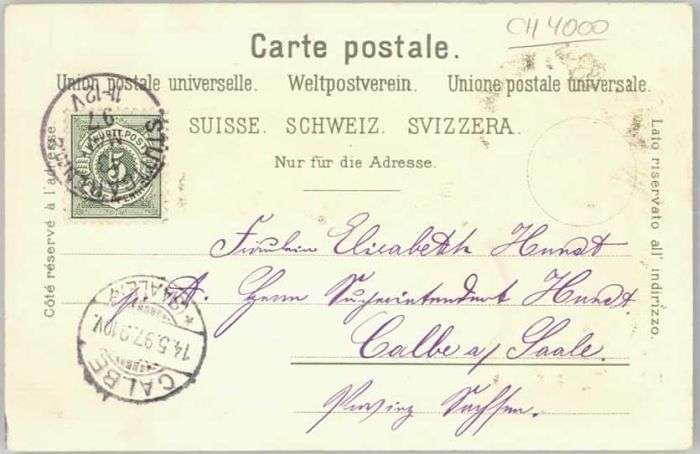 CH 4000
Carte postale.
Union postale universelle. Weltpostverein. Unione postale universale.
SUISSE. SCHWEIZ. SVIZZERA.
Nur für die Adresse.
Côté réservé à l'adresse
Lato riservato all' indirizzo.
K. WÜRTT. POST
5
PFENNIG
97
11-12V
Fräulein Elisabeth Hundt
p. A. Herrn Superintendent Hundt.
Calbe a/ Saale.
Provinz Sachsen.
* (SAALE) *
14.5.97.9-10V.
CALBE